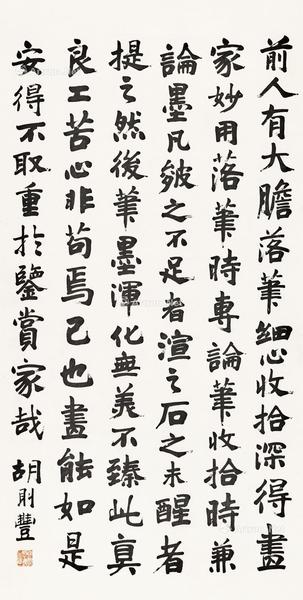 前人有大膽落筆細心收拾深得畫
家妙用落筆時專論筆收拾時兼
論墨凡皴之不足者渲之石之未醒者
提之然後筆墨渾化無美不臻此真
良工苦心非苟焉已也畫能如是
安得不取重於鑒賞家哉
胡則豐